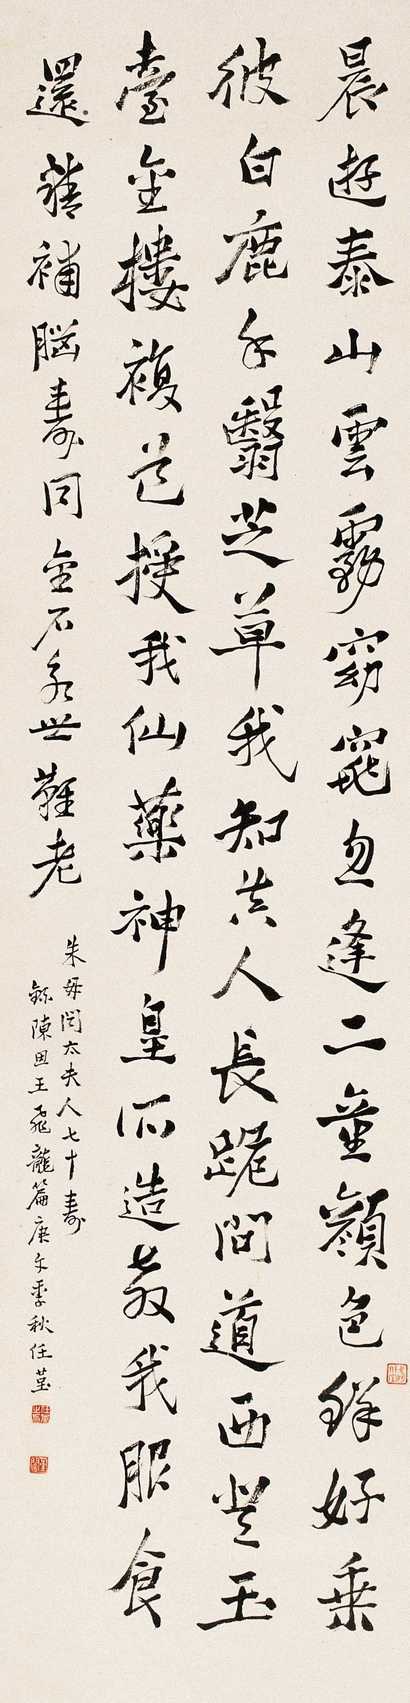 晨遊泰山雲霧窈窕忽逢二童顏色鮮好乘
彼白鹿手翳芝草我知真人長跪問道西登玉
臺金樓複道授我仙藥神皇所造教我服食
還精補腦壽同金石永世難老
朱母閔太夫人七十壽
錄陳思王飛龍篇庚午季秋任堇